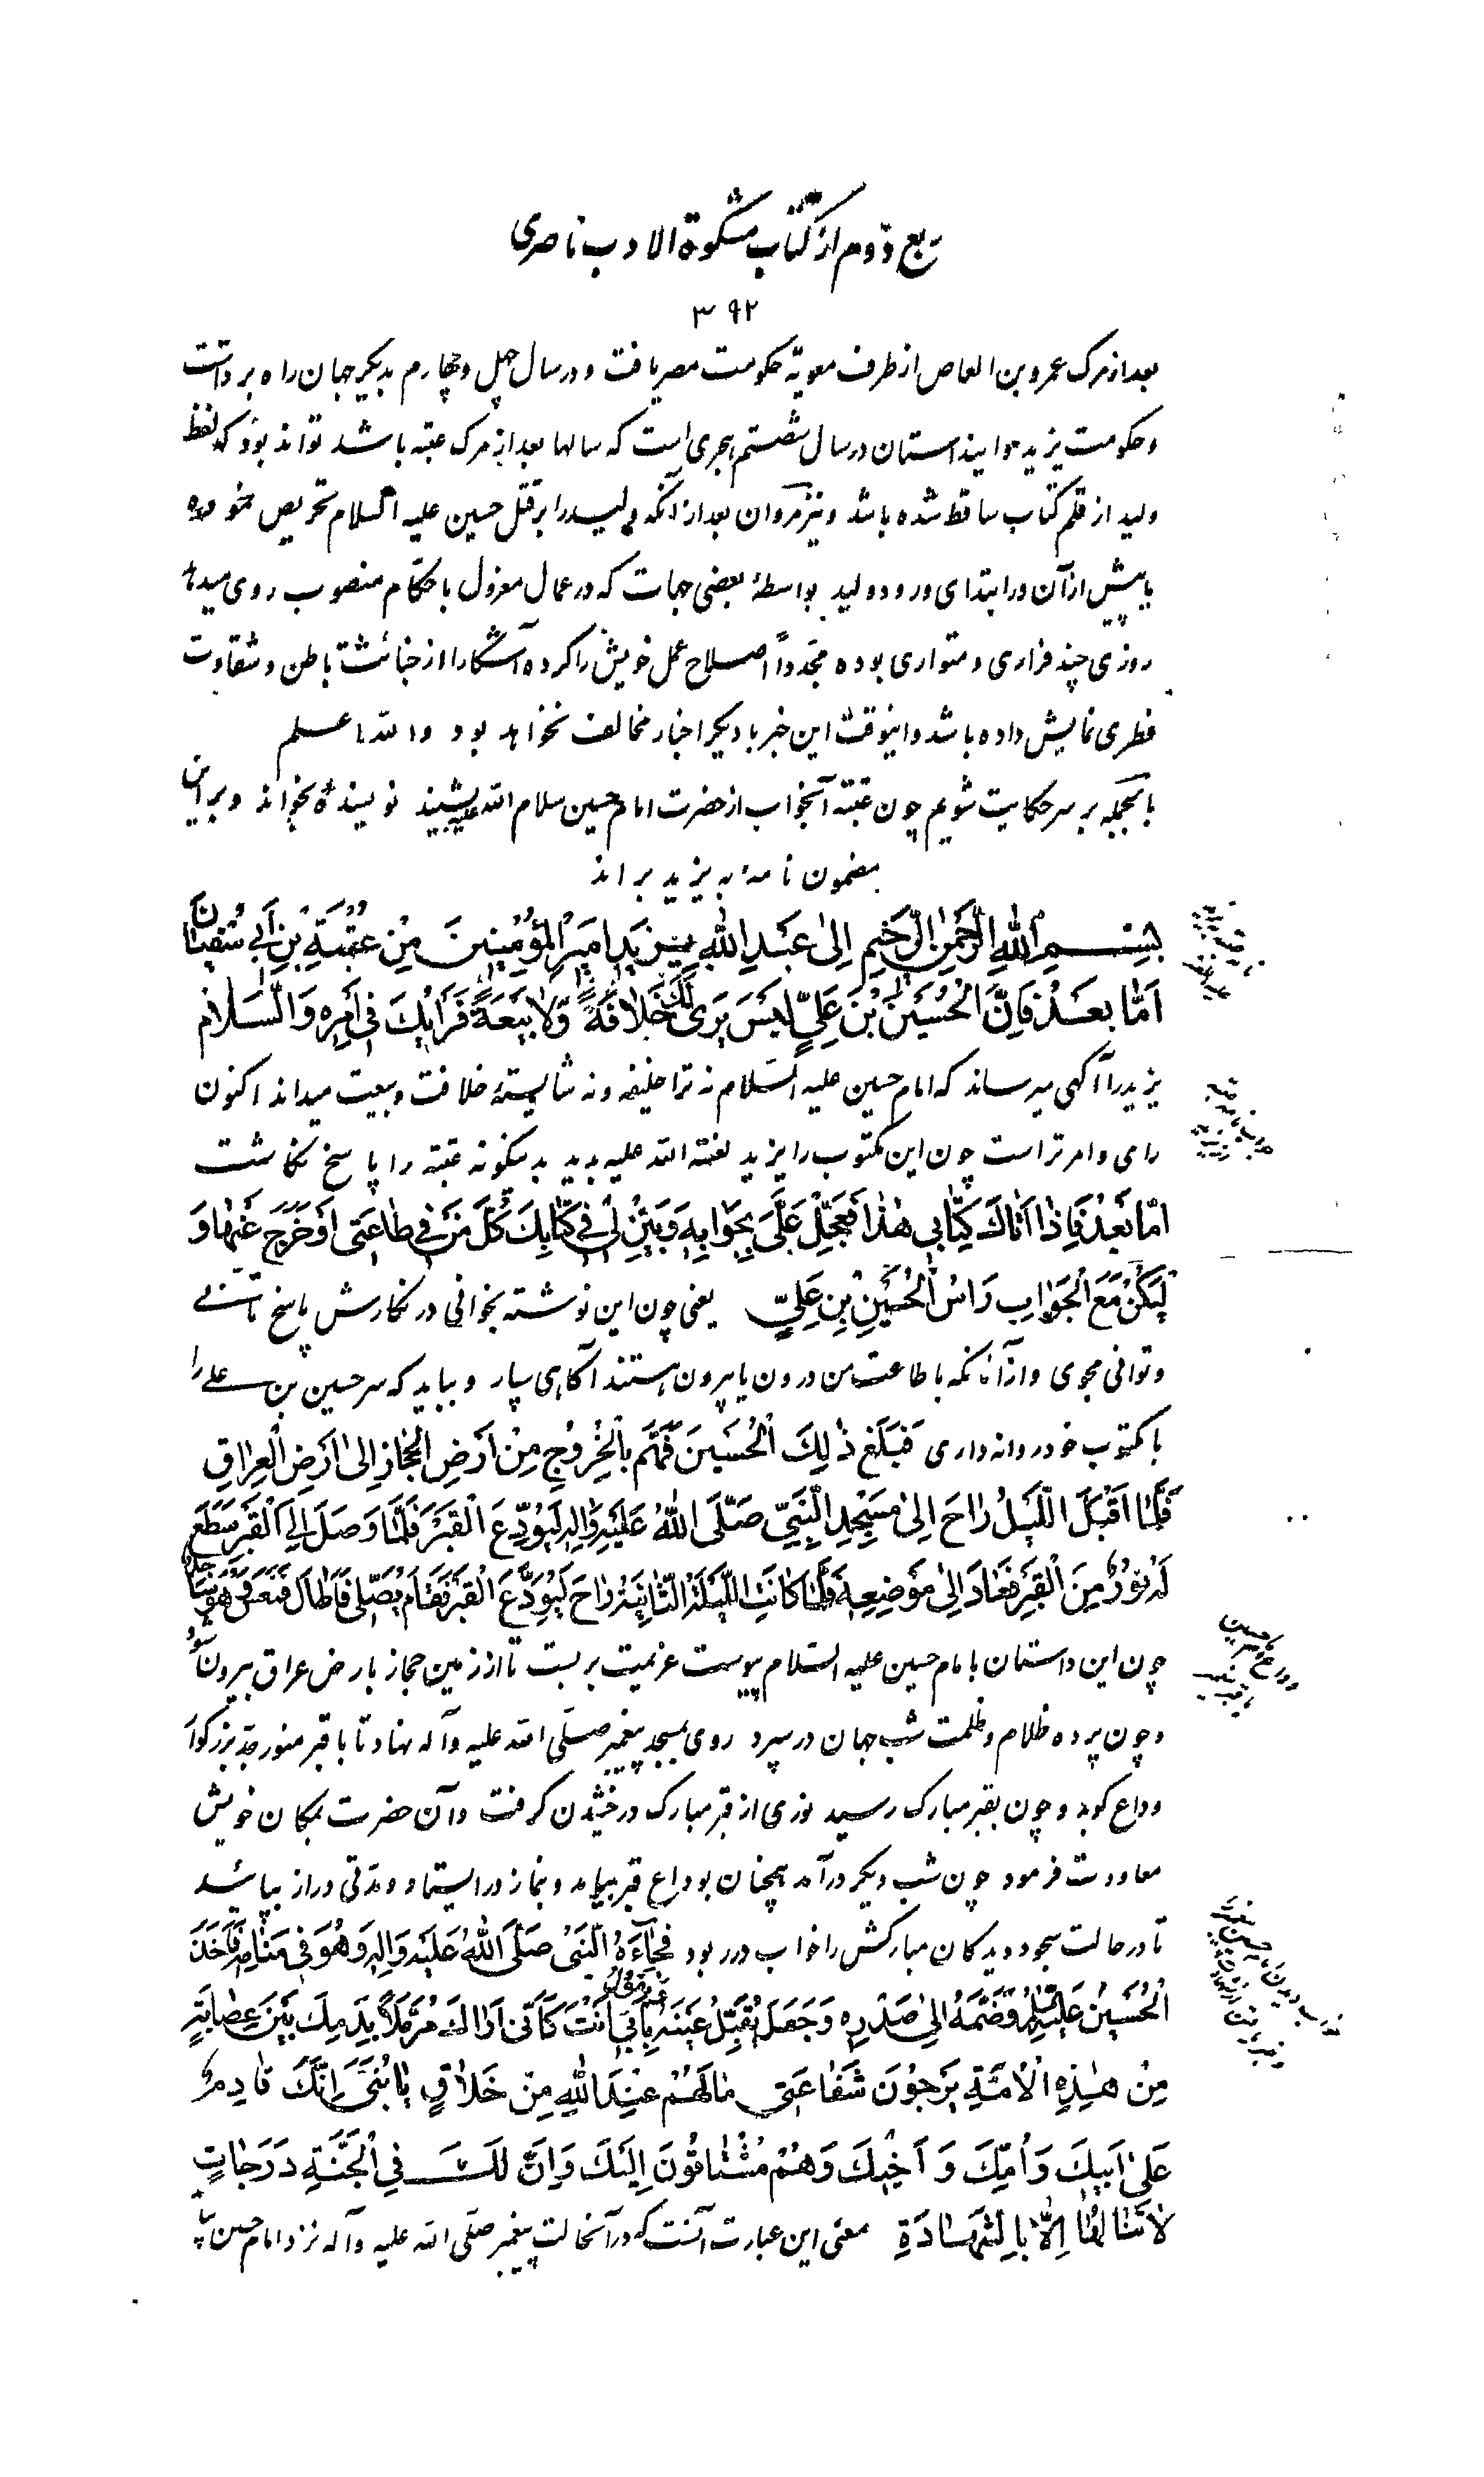 ربع دوم از کتاب مشکوة الادب ناصری
۳۹۲
بعد از مرک عمرو بن العاص از طرف معویّه حکومت مصر یافت و در سال چهل و چهارم بدیکر جهان راه برداشت
و حکومت یزید در اینداستان در سال شصتم هجری است که سالها بعد از مرک عتبه باشد تواند بود که لفظ
ولید از قلم کتاب ساقط شده باشد و نیز مروان بعد از آنکه ولید را بر قتل حسین علیه السلام تحریص نموده
یا پیش از آن در ابتدای ورود ولید بواسطهٔ بعضی جهات که در عمال معزول با حکّام منصوب روی میدهد
روزی چند فراری و متواری بوده مجدداً اصلاح عمل خویش را کرده آشکارا از خباثت باطن و شقاوت
فطری نمایش داده باشد و اینوقت این خبر با دیکر اخبار مخالف نخواهد بود والله اعلم
بالجمله بر سر حکایت شویم چون عتبه آنجواب از حضرت امام حسین سلام الله علیه بشنید نویسندهٔ بخواند و بر این
مضمون نامهٔ به یزید براند
بِسْمِ اللهِ الرَّحْمٰنِ الرَّحِیمِ اِلیٰ عَبْدِ اللهِ یَزِیدَ اَمِیرِ الْمُؤْمِنِینَ مِنْ عُتْبَةِ بْنِ اَبِی سُفْیَانَ
اَمّٰا بَعْدُ فَاِنَّ الْحُسَیْنَ بْنَ عَلِیٍّ لَیْسَ یَرَی لَکَ خِلاٰفَةً وَلاٰ بَیْعَةً فَرَأْیُکَ فِی اَمْرِهِ وَالسَّلاٰمُ
یزید را آکهی میرساند که امام حسین علیه السّلام نه ترا خلیفه و نه شایستهٔ خلافت و بیعت میداند اکنون
رای و امر تراست چون این مکتوب را یزید لعنة الله علیه بدید بدینکونه عتبه را پاسخ نکاشت
اَمّٰا بَعْدُ فَاِذٰا اَتٰاکَ کِتٰابِی هٰذٰا فَعَجِّلْ عَلَیَّ بِجَوٰابِهِ وَبَیِّنْ لِی فِی کِتٰابِکَ کُلَّ مَنْ فِی طٰاعَتِی اَوْ خَرَجَ عَنْهٰا وَ
لْیَکُنْ مَعَ الْجَوٰابِ رَاْسُ الْحُسَیْنِ بْنِ عَلِیٍّ یعنی چون این نوشته بخوانی در نکارش پاسخ تأنّی
و توانی مجوی و از آنانکه با طاعت من درون یا بیرون هستند آکاهی سپار و بباید که سر حسین بن علی را
با مکتوب خود روانه داری فَبَلَغَ ذٰلِکَ الْحُسَیْنَ فَهَمَّ بِالْخُرُوجِ مِنْ اَرْضِ الْحِجٰازِ اِلیٰ اَرْضِ الْعِرٰاقِ
فَلَمّٰا اَقْبَلَ اللَّیْلُ رٰاحَ اِلیٰ مَسْجِدِ النَّبِیِّ صَلَّی اللهُ عَلَیْهِ وَاٰلِهِ لِیُوَدِّعَ الْقَبْرَ فَلَمّٰا وَصَلَ اِلَی الْقَبْرِ سَطَعَ
لَهُ نُورٌ مِنَ الْقَبْرِ فَعٰادَ اِلیٰ مَوْضِعِهِ فَلَمّٰا کٰانَتِ اللَّیْلَةُ الثّٰانِیَةُ رٰاحَ لِیُوَدِّعَ الْقَبْرَ فَقٰامَ یُصَلِّی فَاَطٰالَ فَنَعَسَ وَهُوَ سٰاجِدٌ
چون این داستان با امام حسین علیه السّلام پیوست عزیمت بر بست تا از زمین حجاز بارض عراق بیرون شود
و چون پرده ظلام و ظلمت شب جهان در سپرد روی بمسجد پیغمبر صلّی الله علیه وآله نهاد تا با قبر منور جدّ بزرکوار
وداع کوید و چون بقبر مبارک رسید نوری از قبر مبارک درخشیدن کرفت و آن حضرت بمکان خویش
معاودت فرمود چون شب دیکر درآمد همچنان بوداع قبر بیامد و بنماز در ایستاد و مدّتی دراز بپائید
تا در حالت سجود دیدکان مبارکش را خواب در ربود فَجٰاءَهُ النَّبِیُّ صَلَّی اللهُ عَلَیْهِ وَاٰلِهِ وَهُوَ فِی مَنٰامِهِ فَاَخَذَ
الْحُسَیْنَ عَلَیْهِ السَّلاٰمُ وَضَمَّهُ اِلیٰ صَدْرِهِ وَجَعَلَ یُقَبِّلُ عَیْنَیْهِ وَیَقُولُ بِاَبِی اَنْتَ کَاَنِّی اَرٰاکَ مُرَمَّلاً بِدَمِکَ بَیْنَ عِصٰابَةٍ
مِنْ هٰذِهِ الْاُمَّةِ یَرْجُونَ شَفٰاعَتِی مٰا لَهُمْ عِنْدَ اللهِ مِنْ خَلاٰقٍ یٰا بُنَیَّ اِنَّکَ قٰادِمٌ
عَلیٰ اَبِیکَ وَاُمِّکَ وَ اَخِیکَ وَهُمْ مُشْتٰاقُونَ اِلَیْکَ وَاِنَّ لَکَ فِی الْجَنَّةِ دَرَجٰاتٍ
لاٰ تَنٰالُهٰا اِلاّٰ بِالشَّهٰادَةِ معنی این عبارت آنست که در آنحالت پیغمبر صلّی الله علیه وآله نزد امام حسین